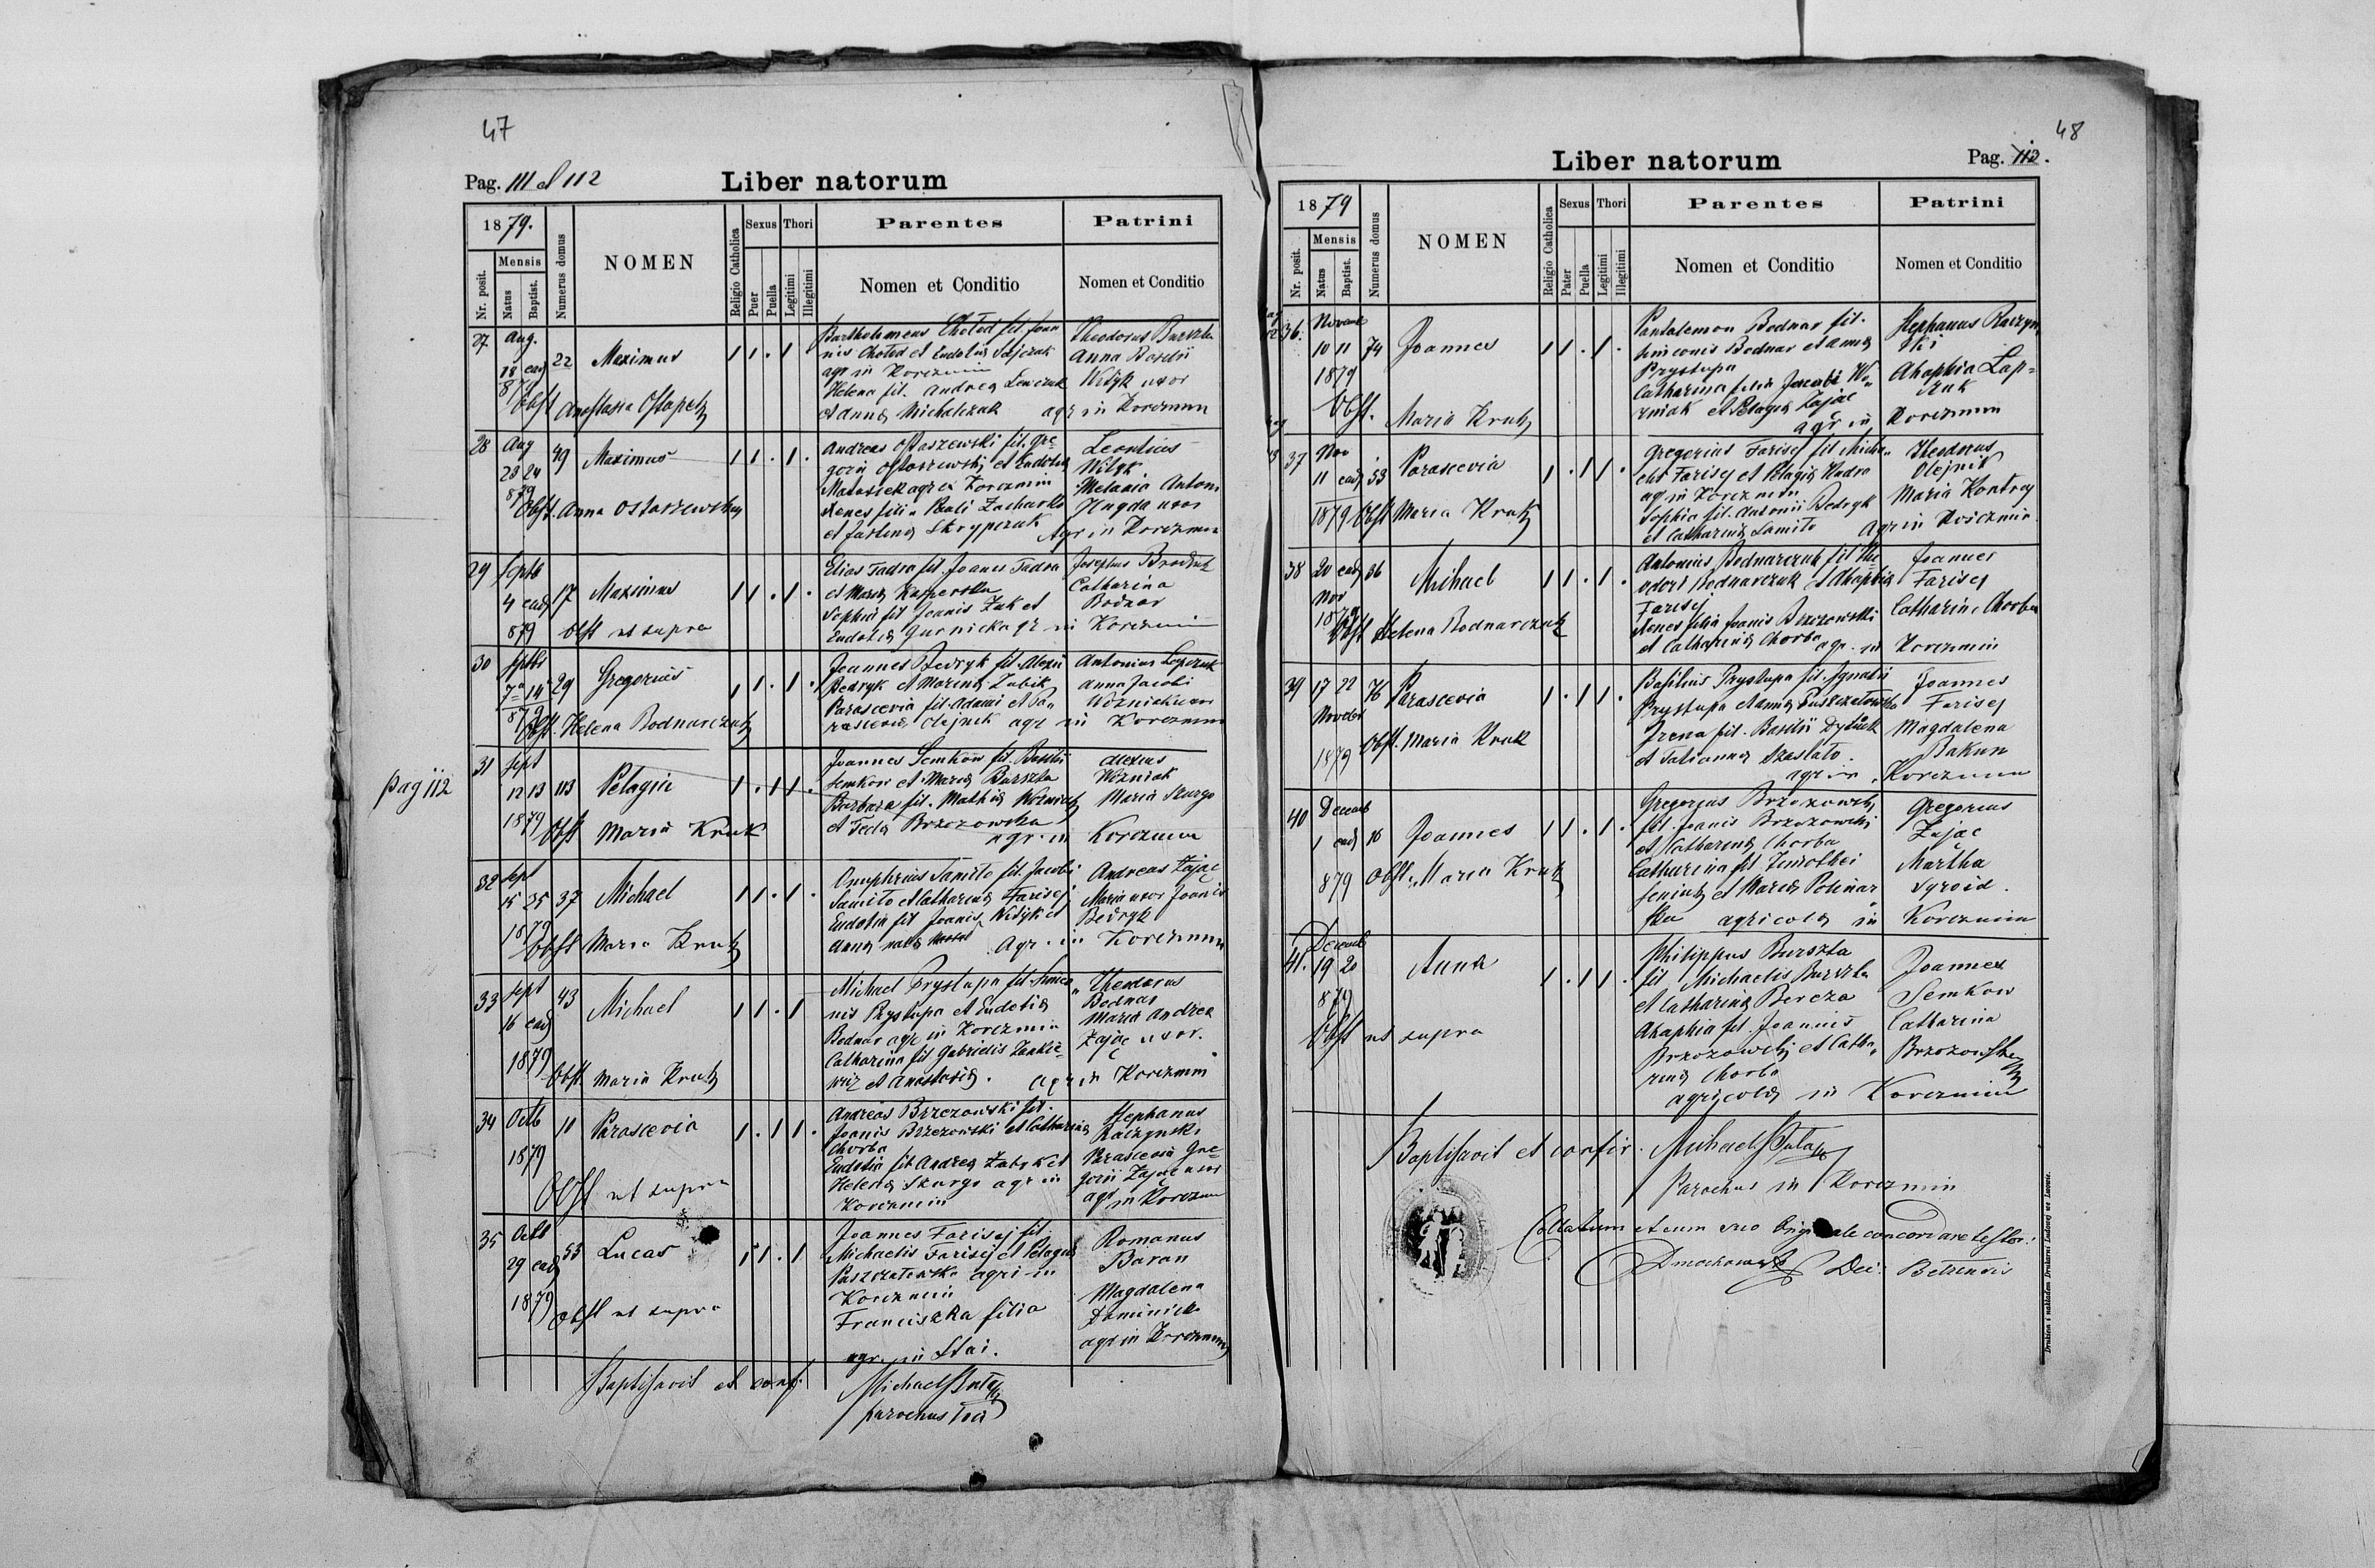 47
Pag. 111 et 112 Liber natorum
1879.
Nr. posit.
Mensis
Natus
Baptist.
Numerus domus
NOMEN
Religio Catholica
Sexus
Puer
Puella
Thori
Legitimi
Illegitimi
Parentes
Nomen et Conditio
Patrini
Nomen et Conditio
27 Aug. 18 ead 22 Maximus
879
Obst Anastasia Ostapets
Bartholomeus Choted fil. Joan
nis Choted et Eudotiae
agr in Korczmin
Helena fil. Andreae
et Annae Michalczuk
Theodorus Burszta
Anna
Witÿk uxor
agr in Korczmin
28 Aug 23 24 49 Maximus
879
Obst. Anna Ostaszewska
Andreas Ostaszewski fil. Gre
gorii Ostaszewski et Eudotiae
agr in Korczmin
Xenes filia Pauli Zacharko
et Justinae Skrypczuk
Leontius
Witÿk
Melania Antoni
uxor
Agr in Korczmin
29 Septb 4 ead 17 Maximus
879 Obst ut supra
Elias Fadra fil. Joanis Fadra
et Mariae Kasperska
Sophia fil Joanis Zuk et
Eudotiae
Josephus
Catharina
Bodnar
Korczmin
30 Septbr 7 14 29 Gregorius
879
Obst. Helena Bodnarczuk
Joannes Bedryk fil. Alexii
Bedryk et Marinae Zubik
Parascevia fil. Adami et Pa
rasceviae Olejnik agr in
Antonius
Anna Jacobi
Wozniak uxor
Korczmin
pag 112
31 Sept 12 13 113 Pelagia
1879
Obst Maria Kruk
Joannes Semkow fil. Basilii
Semkow et Mariae Burszta
Barbara fil. Mathiae Wozniak
et Feclae Brzozowska
agr. in
Alexius
Wozniak
Maria Skurgo
Korczmin
32 Sept 15 25 37 Michael
1879
Obst Maria Kruk
Onuphrius Samito fil. Jacobi
Samito et Catharinae Farisej
Eudotia fil Joanis Witÿk et
Annae
Agr. in
Andreas Zając
Maria uxor Joanis
Bedryk
Korczmin
33 Sept 16 ead 43 Michael
1879
Obst. Maria Kruk
Michael Prystupa fil. Simeo
nis Prystupa et Eudotiae
Bodnar agr in Korczmin
Catharina fil Gabrielis
et Anastasiae.
Theodorus
Bodnar
Maria Andrea
Zając uxor.
agr in Korczmin
34 Octb 11 Parascevia
1879
Obst ut supra
Andreas Brzozowski fil.
Joanis Brzozowski et Catharinae
Chorba
Eudotia fil Andreae Zubik et
Helenae Skurgo agr in
Korczmin
Stephanus
Raczynski
Parascevia Gre
gorii Zając uxor
agr in Korczmin
35 Octb 29 ead 53 Lucas
1879
Obst ut supra
Joannes Farisej fil
Michaelis Farisej et Pelagiae
Puszczatowska agr in
Korczmin
Franciszka filia
agr. in Stai.
Romanus
Baran
Magdalena
Dominik
agr in Korczmin
Baptisavit et conf. Michael
parochus loci
48
Liber natorum Pag. 112.
1879
Nr. posit.
Mensis
Natus
Baptist.
Numerus domus
NOMEN
Religio Catholica
Sexus
Pater
Puella
Thori
Legitimi
Illegitimi
Parentes
Nomen et Conditio
Patrini
Nomen et Conditio
36. Novemb 10 11 74 Joannes
1879
Obst. Maria Kruk
Pantalemon Bodnar fil.
Simeonis Bodnar et Annae
Prystupa
Catharina filia Jacobi Wo
zniak et Pelagiae Zając
agr in
Stephanus Raczyn
ski
Ahaphia Lap=
zuk
Korczmin
37 Nov 11 ead 53 Parascevia
1879 Obst Maria Kruk
Gregorius Farisej fil Micha
elis Farisej et Pelagiae
agr in Korczmin
Sophia fil. Antonii Bedryk
et Catharinae Samito
Theodorus
Olejnik
Maria
Agr in Korczmin
38 20 ead 36 Mihael
Nov
1879
Obst Helena Bodnarczuk
Antonius Bodnarczuk fil The
odori Bodnarczuk et Ahaphiae
Farisej
Xenes filia Joanis Brzozowski
et Catharinae Chorba agr. in
Joannes
Farisej
Catharina Chorba
Korczmin
39 17 22 76 Parascevia
Novebr
1879 Obst. Maria Kruk
Basilius Prystupa fil. Ignatii
Prystupa et Annae Puszczatowska
Irena fil. Basilii
et Tatiannae Szaslato.
agr in
Joannes
Farisej
Magdalena
Bakun
Korczmin
40 Decemb 1 ead 16 Joannes
879 Obst. Maria Kruk
Gregorius Brzozowski
fil. Joanis Brzozowski
et Catharinae Chorba
Catharina fil Timothei
Seniuk et Mariae
ska agricolae in
Gregorius
Zając
Martha
Syroid.
Korczmin
41. Decemb 19 20 Anna
879
Obst ut supra
Philippus Burszta
fil Michaelis Burszta
et Catharinae Bercza
Ahaphia fil. Joannis
Brzozowski et Catha
rinae Chorba
agricolae in Korczmin
Joannes
Semkow
Catharina
Brzozowska
Baptisavit et confir. Michael
Parochus in Korczmin
Collatum et cum suo originale concordare testor:
Dec: Belzensis
Drukiem i nakładem Drukarni Ludowej we Lwowie.